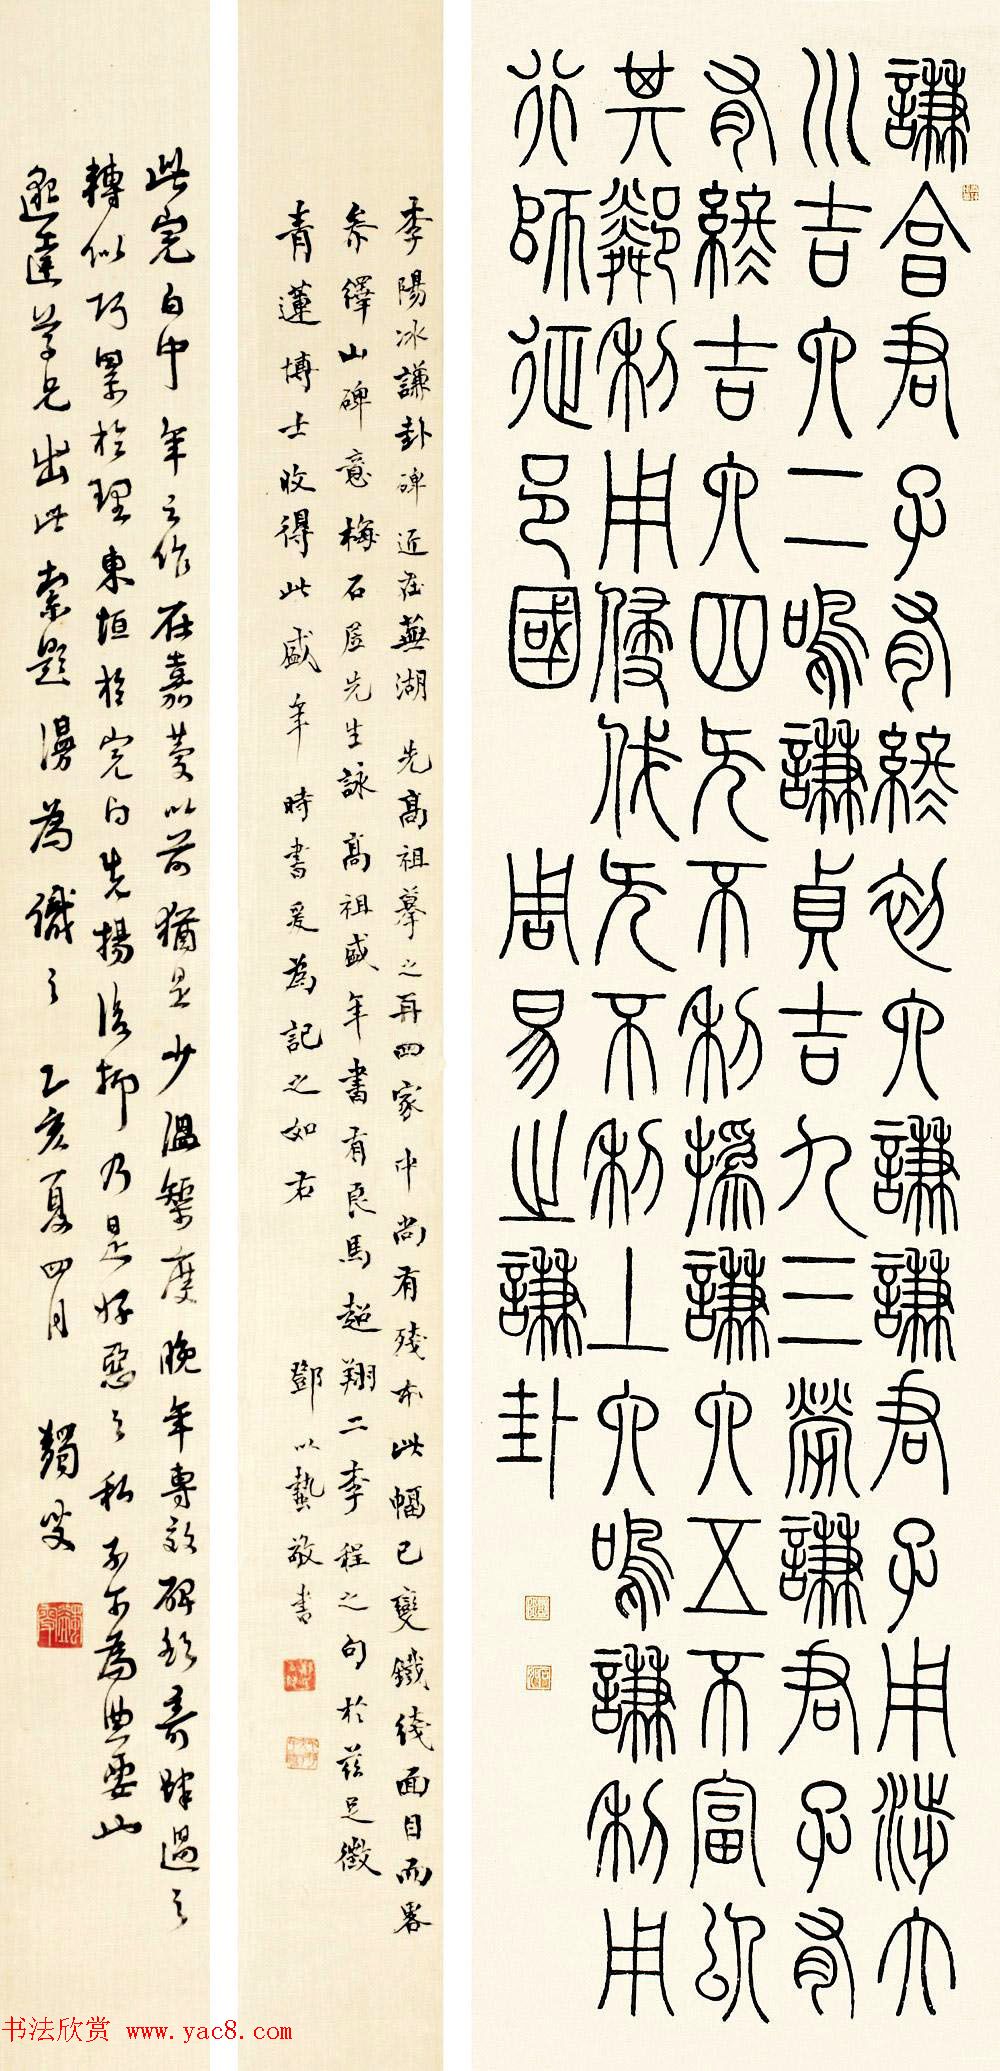 謙亯君子有終初六謙謙君子用涉大
川吉六二鳴謙貞吉九三勞謙君子有
有終吉六四无不利撝謙六五不富以
其鄰利用侵伐无不利上六鳴謙利用
行師征邑國 周易上謙卦
李陽冰謙卦碑近在蕪湖先高祖摹之再四家中尚有殘本此幅已變鐵綫面目而畧
參繹山碑意梅石居先生詠高祖盛年書有良馬超翔二李程之句於茲足徵
青蓮博士收得此盛年時書爰為記之如右 鄧以蟄敬書
此完白中年之作在嘉慶以前猶是少溫榘度晚年專效碑額奇肆過之
轉似巧累於理東垣於完白先揚後抑乃是好惡之私不可為典要也
學兄出此索題漫為識之 乙亥夏四月 蠲叟
书法欣赏 www.yac8.com